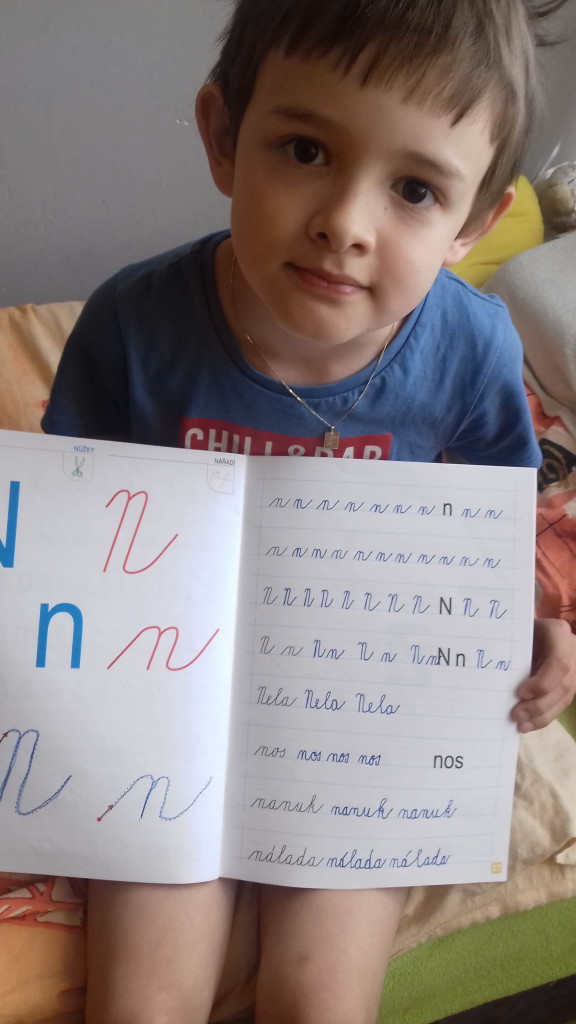 CHILL & BAR
NŮŽKY
NÁŘADÍ
N N
n n
N n
n n n n n n n n n n
n n n n n n n n n n n
N N N N N N N N N N N
N n N n N n N n N n N n
Nela Nela Nela
nos nos nos nos nos
nanuk nanuk nanuk
nálada nálada nálada